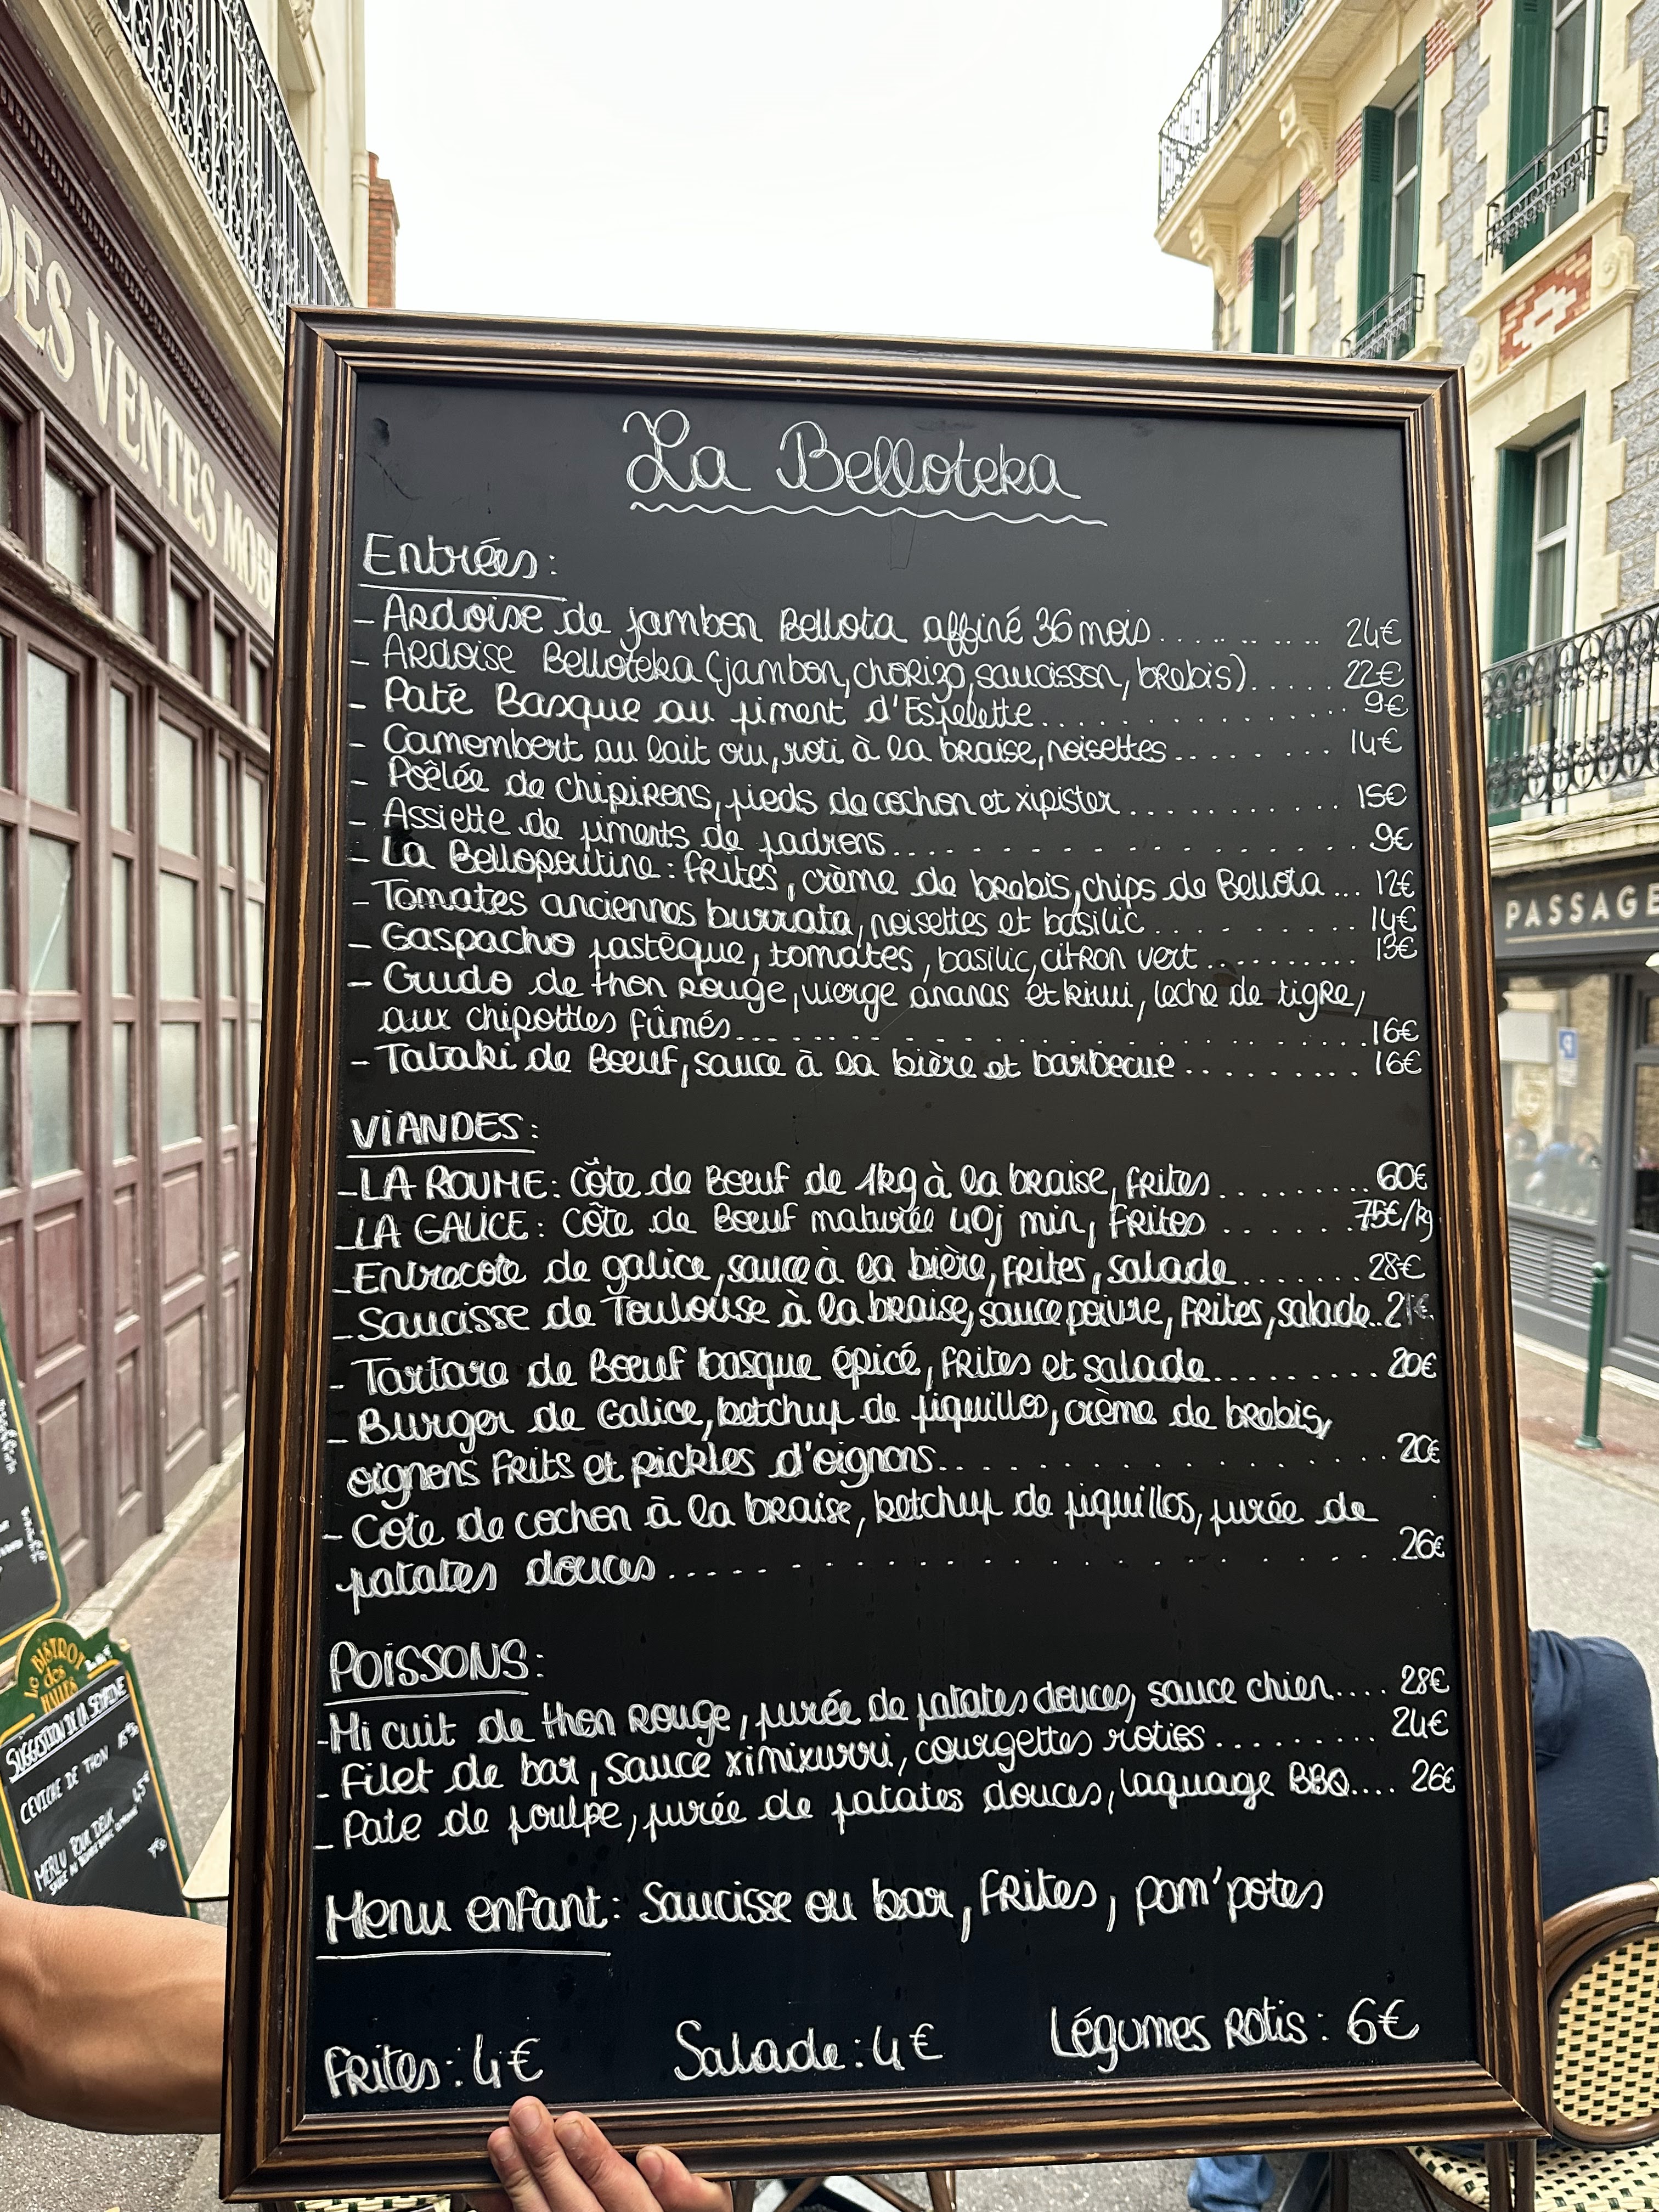 DES VENTES MOB
PASSAGE
La Belloteka
Entrées:
- Ardoise de jambon Bellota affiné 36 mois.......... 24€
- Ardoise Belloteka (jambon, chorizo, saucisson, brebis)..... 22€
- Paté Basque au piment d'Espelette................ 9€
- Camembert au lait cru, roti à la braise, noisettes........ 14€
- Poêlée de chipirons, pieds de cochon et xipister........... 15€
- Assiette de piments de padrons................... 9€
- La Bellopoutine: frites, crème de brebis, chips de Bellota... 12€
- Tomates anciennes burrata, noisettes et basilic.......... 14€
- Gaspacho pastèque, tomates, basilic, citron vert......... 13€
- Crudo de thon rouge, vierge ananas et kiwi, leche de tigre,
aux chipottles fûmés........................ 16€
- Tataki de Boeuf, sauce à la bière et barbecue.......... 16€
VIANDES:
- LA ROUME: Côte de Boeuf de 1kg à la braise, frites......... 60€
- LA GALICE: Côte de Boeuf maturée 40j min, Frites....... 75€/kg
- Entrecote de galice, sauce à la bière, frites, salade....... 28€
- Saucisse de Toulouse à la braise, sauce poivre, frites, salade..
- Tartare de Boeuf basque épicé, frites et salade......... 20€
- Burger de Galice, ketchup de piquillos, crème de brebis,
oignons frits et pickles d'oignons................ 20€
- Cote de cochon à la braise, ketchup de piquillos, purée de
patates douces........................ 26€
POISSONS:
- Mi cuit de thon rouge, purée de patates douces, sauce chien.... 28€
- Filet de bar, sauce ximixurri, courgettes roties.......... 24€
- Pate de poulpe, purée de patates douces, laquage BBQ.... 26€
Menu enfant: Saucisse ou bar, frites, pom'potes
Frites: 4€ Salade: 4€ Légumes rotis: 6€
Le BISTROT
des
HALLES
SUGGESTION DE LA SEMAINE
CEVICHE DE THON
MERLU POUR DEUX